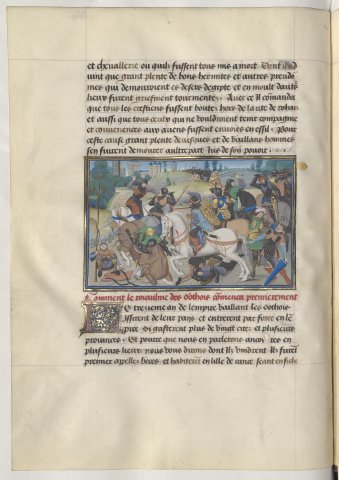 et chevallerie ou quilz fussent tous mis a mort Dont il ad
uint que grant plente de bons hermites et autres preudo
mes qui demouroient es desers degipte et en moult daults
lieux furent griefment tourmentes Auec ce il commanda
que tous les crestiens fussent boutes hors de la cite de
et aussi que tous ceulx qui ne vouldroient tenir compagnie
et conuenences aux ariens fussent enuoies en essil Pour
ceste cause grant plente deuesques et de vaillans hommes
sen fuirent demourer aultre part hus de son pouoir
Comment le roiaulme des Gothois commenca premierement
Le trezieme an de lempire vaillant les Gothois
issirent de leur pays et entrerent par force en lem
pire Si gasterent plus de vingt cites et plusieurs
prouinces Et pource que nous en parlerons ancoires en
plusieurs lieux nous vous dirons dont ilz vindrent Ilz furent
premier appelles et habiterent en lille de seant en siche